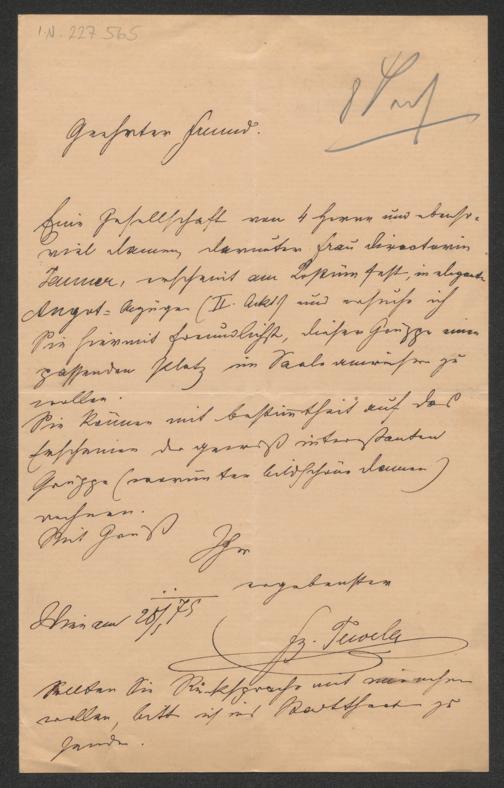 I.N. 227.565
Geehrter Freund.
Eine Gesellschaft von 4 Herrn und ebenso-
viel Damen, darunter Frau Directorin
Jauner, erscheint am Kostüm Fest, in eleganten
Angot-Anzügen (II. Act) und ersuche ich
Sie hiermit freundlichst, dieser Gruppe einen
passenden Platz im Saale anweisen zu
wollen.
Sie können mit Bestimmtheit auf das
Erscheinen der gewiß interessanten
Gruppe (worunter bildschöne Damen)
rechnen.
Mit Gruß
Ihr
ergebenster
Wien am 28/1 75
Fz. Tewele
Sollten Sie Rücksprache mit mir nehmen
wollen, bitte ich ins Stadttheater zu
senden.